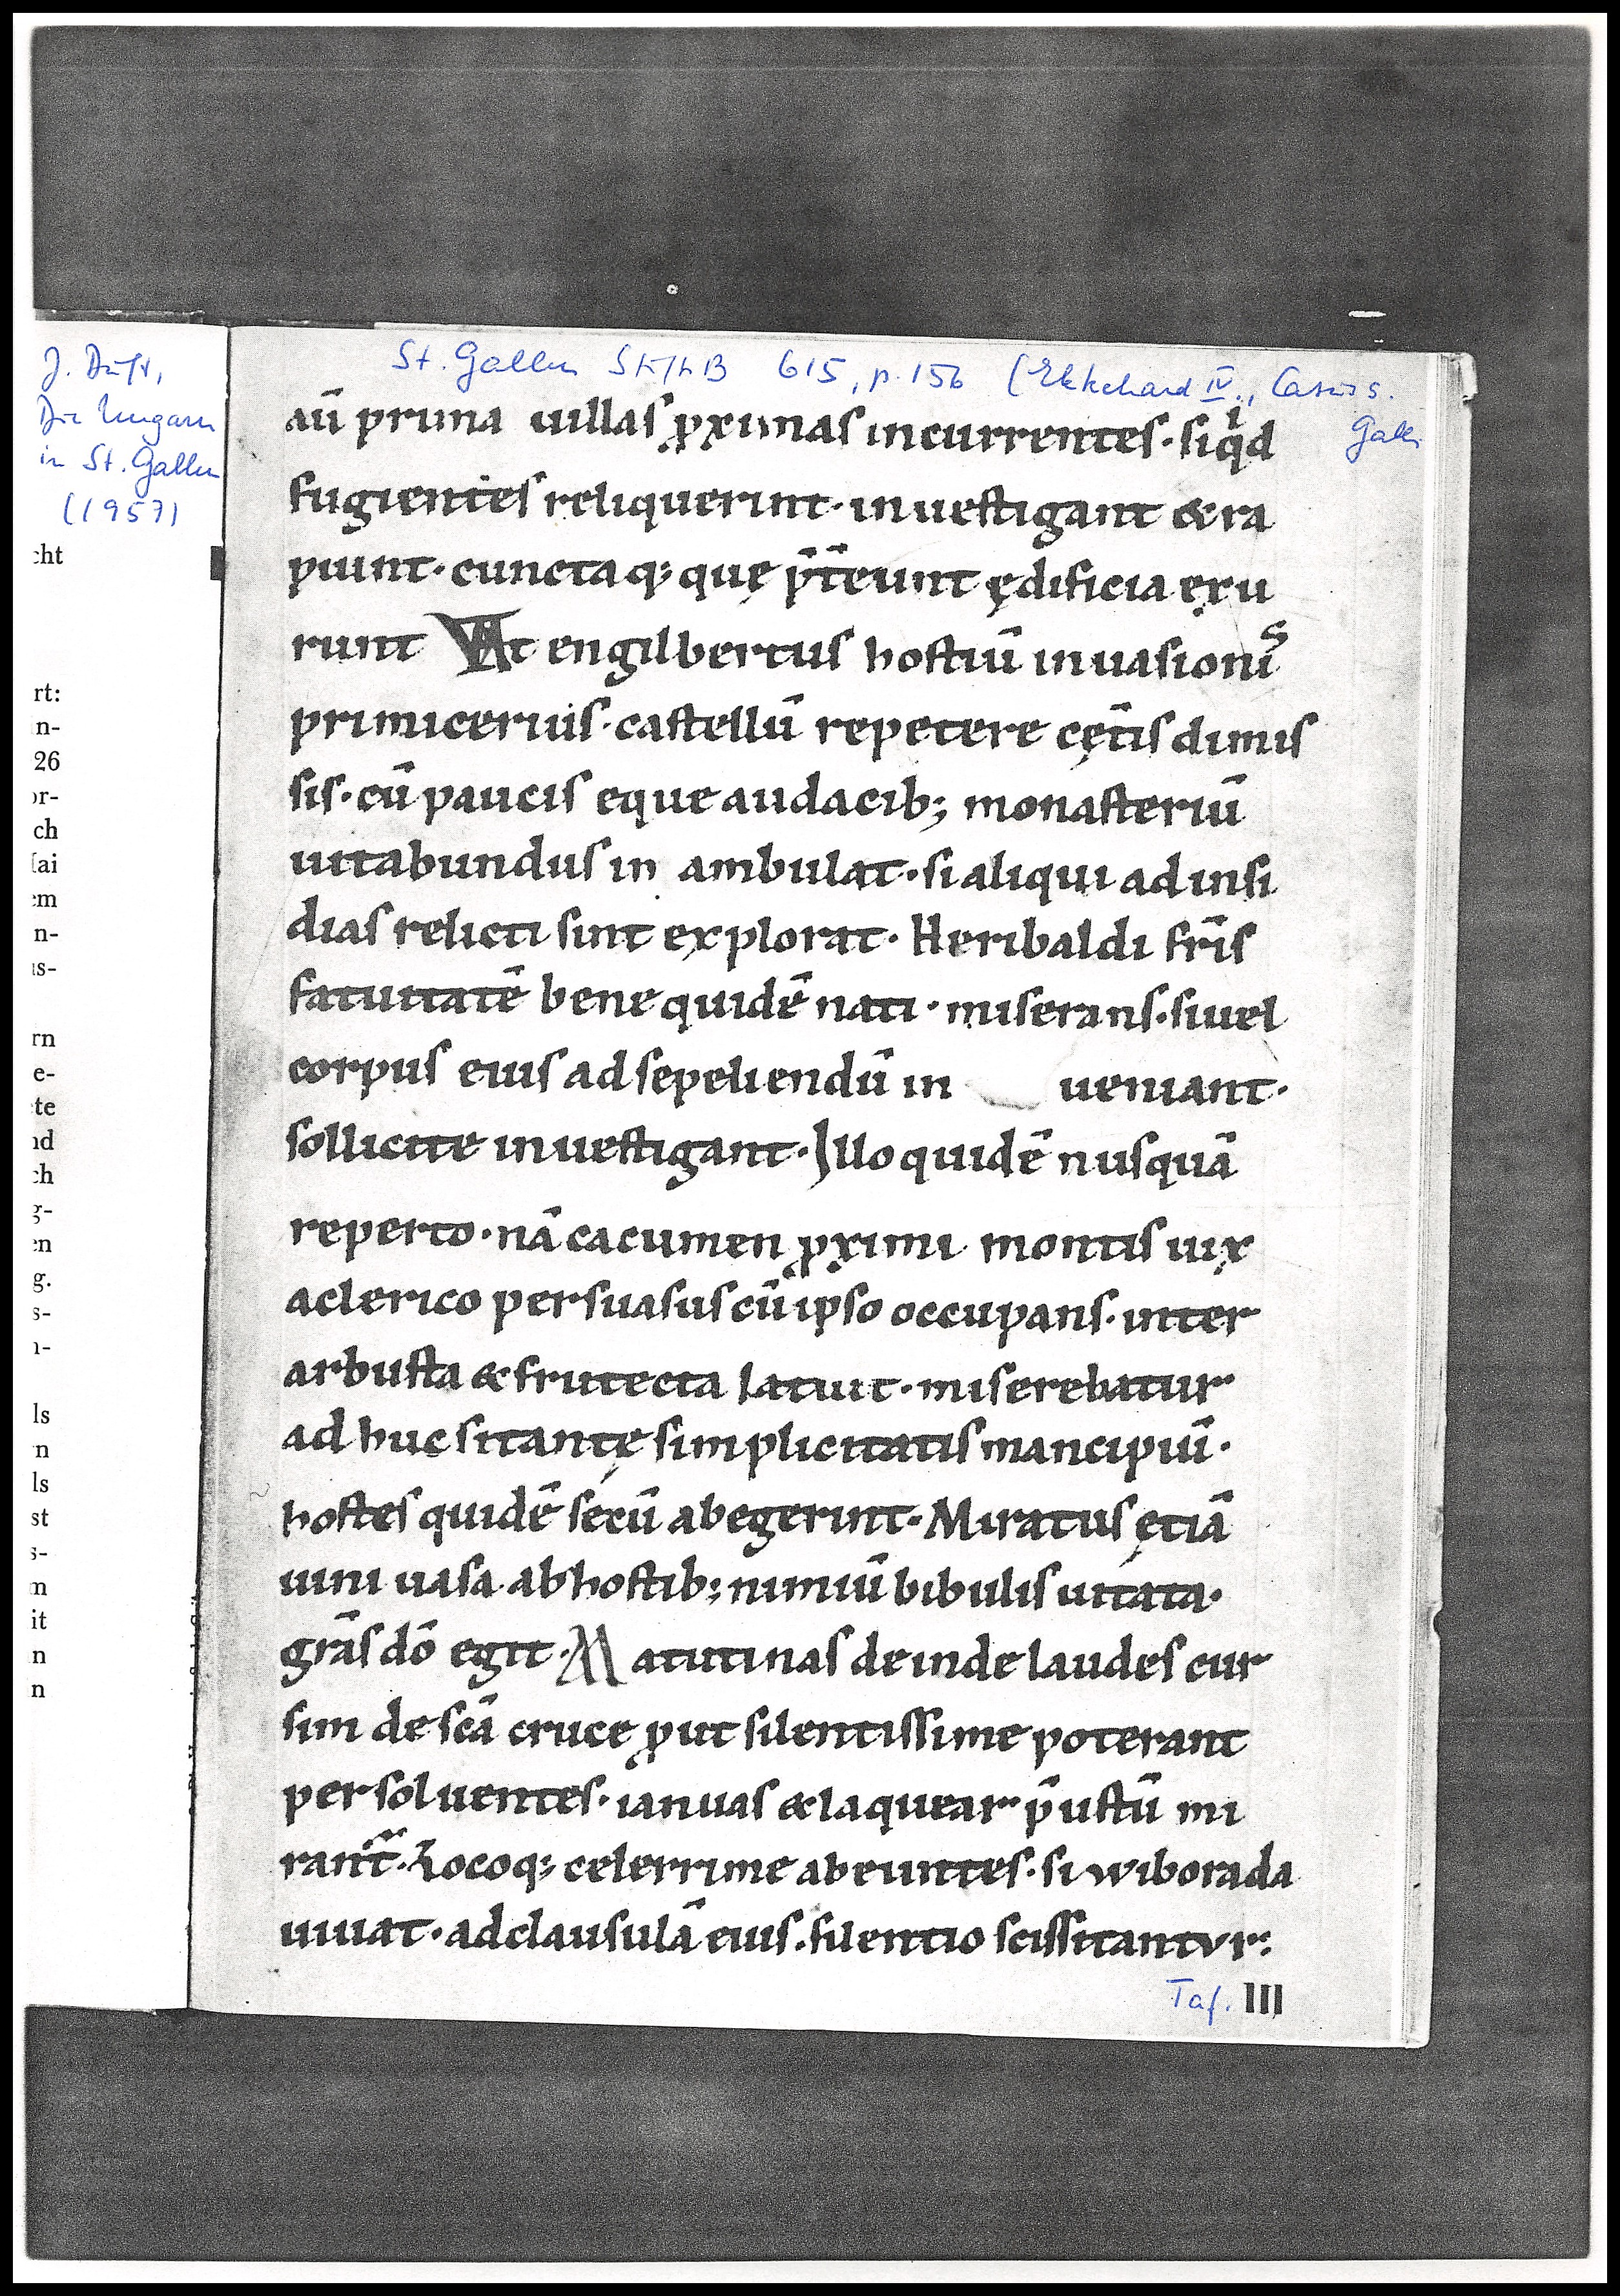 J. Duft,
Die Ungarn
in St. Gallen
(1957)
cht
rt:
n-
26
or-
ch
Mai
em
n-
us-
rn
e-
te
nd
ch
g-
en
g.
s-
n-
ls
n
ls
st
s-
n
it
n
n
St. Gallen StiftB 615, p. 156 (Ekkehard IV., Casus s.
Galli
aū prima uillas ꝓximas incurrentes · siqͥd
fugientes reliquerint · inuestigant & ra
piunt · cunctaq; quę p̄t̄eunt ędificia exu
runt At engilbertus hostiū inuasioniˢ
primicerius · castellū repetere cęt̄is dimis
sis · cū paucis eque audacib; monasteriū
uitabundus in ambulat · si aliqui ad insi
dias relicti sint explorat · Heribaldi fr̄is
fatuitatē bene quidē nati · miserans · si uel
corpus eius ad sepeliendū in ueniant ·
sollicite inuestigant · Illo quidē nusquā
reperto · nā cacumen ꝓximi montis uix
a clerico persuasus cū ipso occupans · inter
arbusta & frutecta latuit · miserebatur
ad huc si tantę simplicitatis mancipiū ·
hostes quidē secū abegerint · Miratus ętiā
uini uasa ab hostib; nimiū bibulis uitata ·
grās dō egit · Matutinas deinde laudes cur
sim de scā cruce ꝓut silentissime poterant
persoluentes · ianuas & laquear p̄ustū mi
rant̄ · Locoq; celerrime abeuntes · si wiborada
uiuat · ad clausulā eius · silentio scissitantvr:
Taf. III